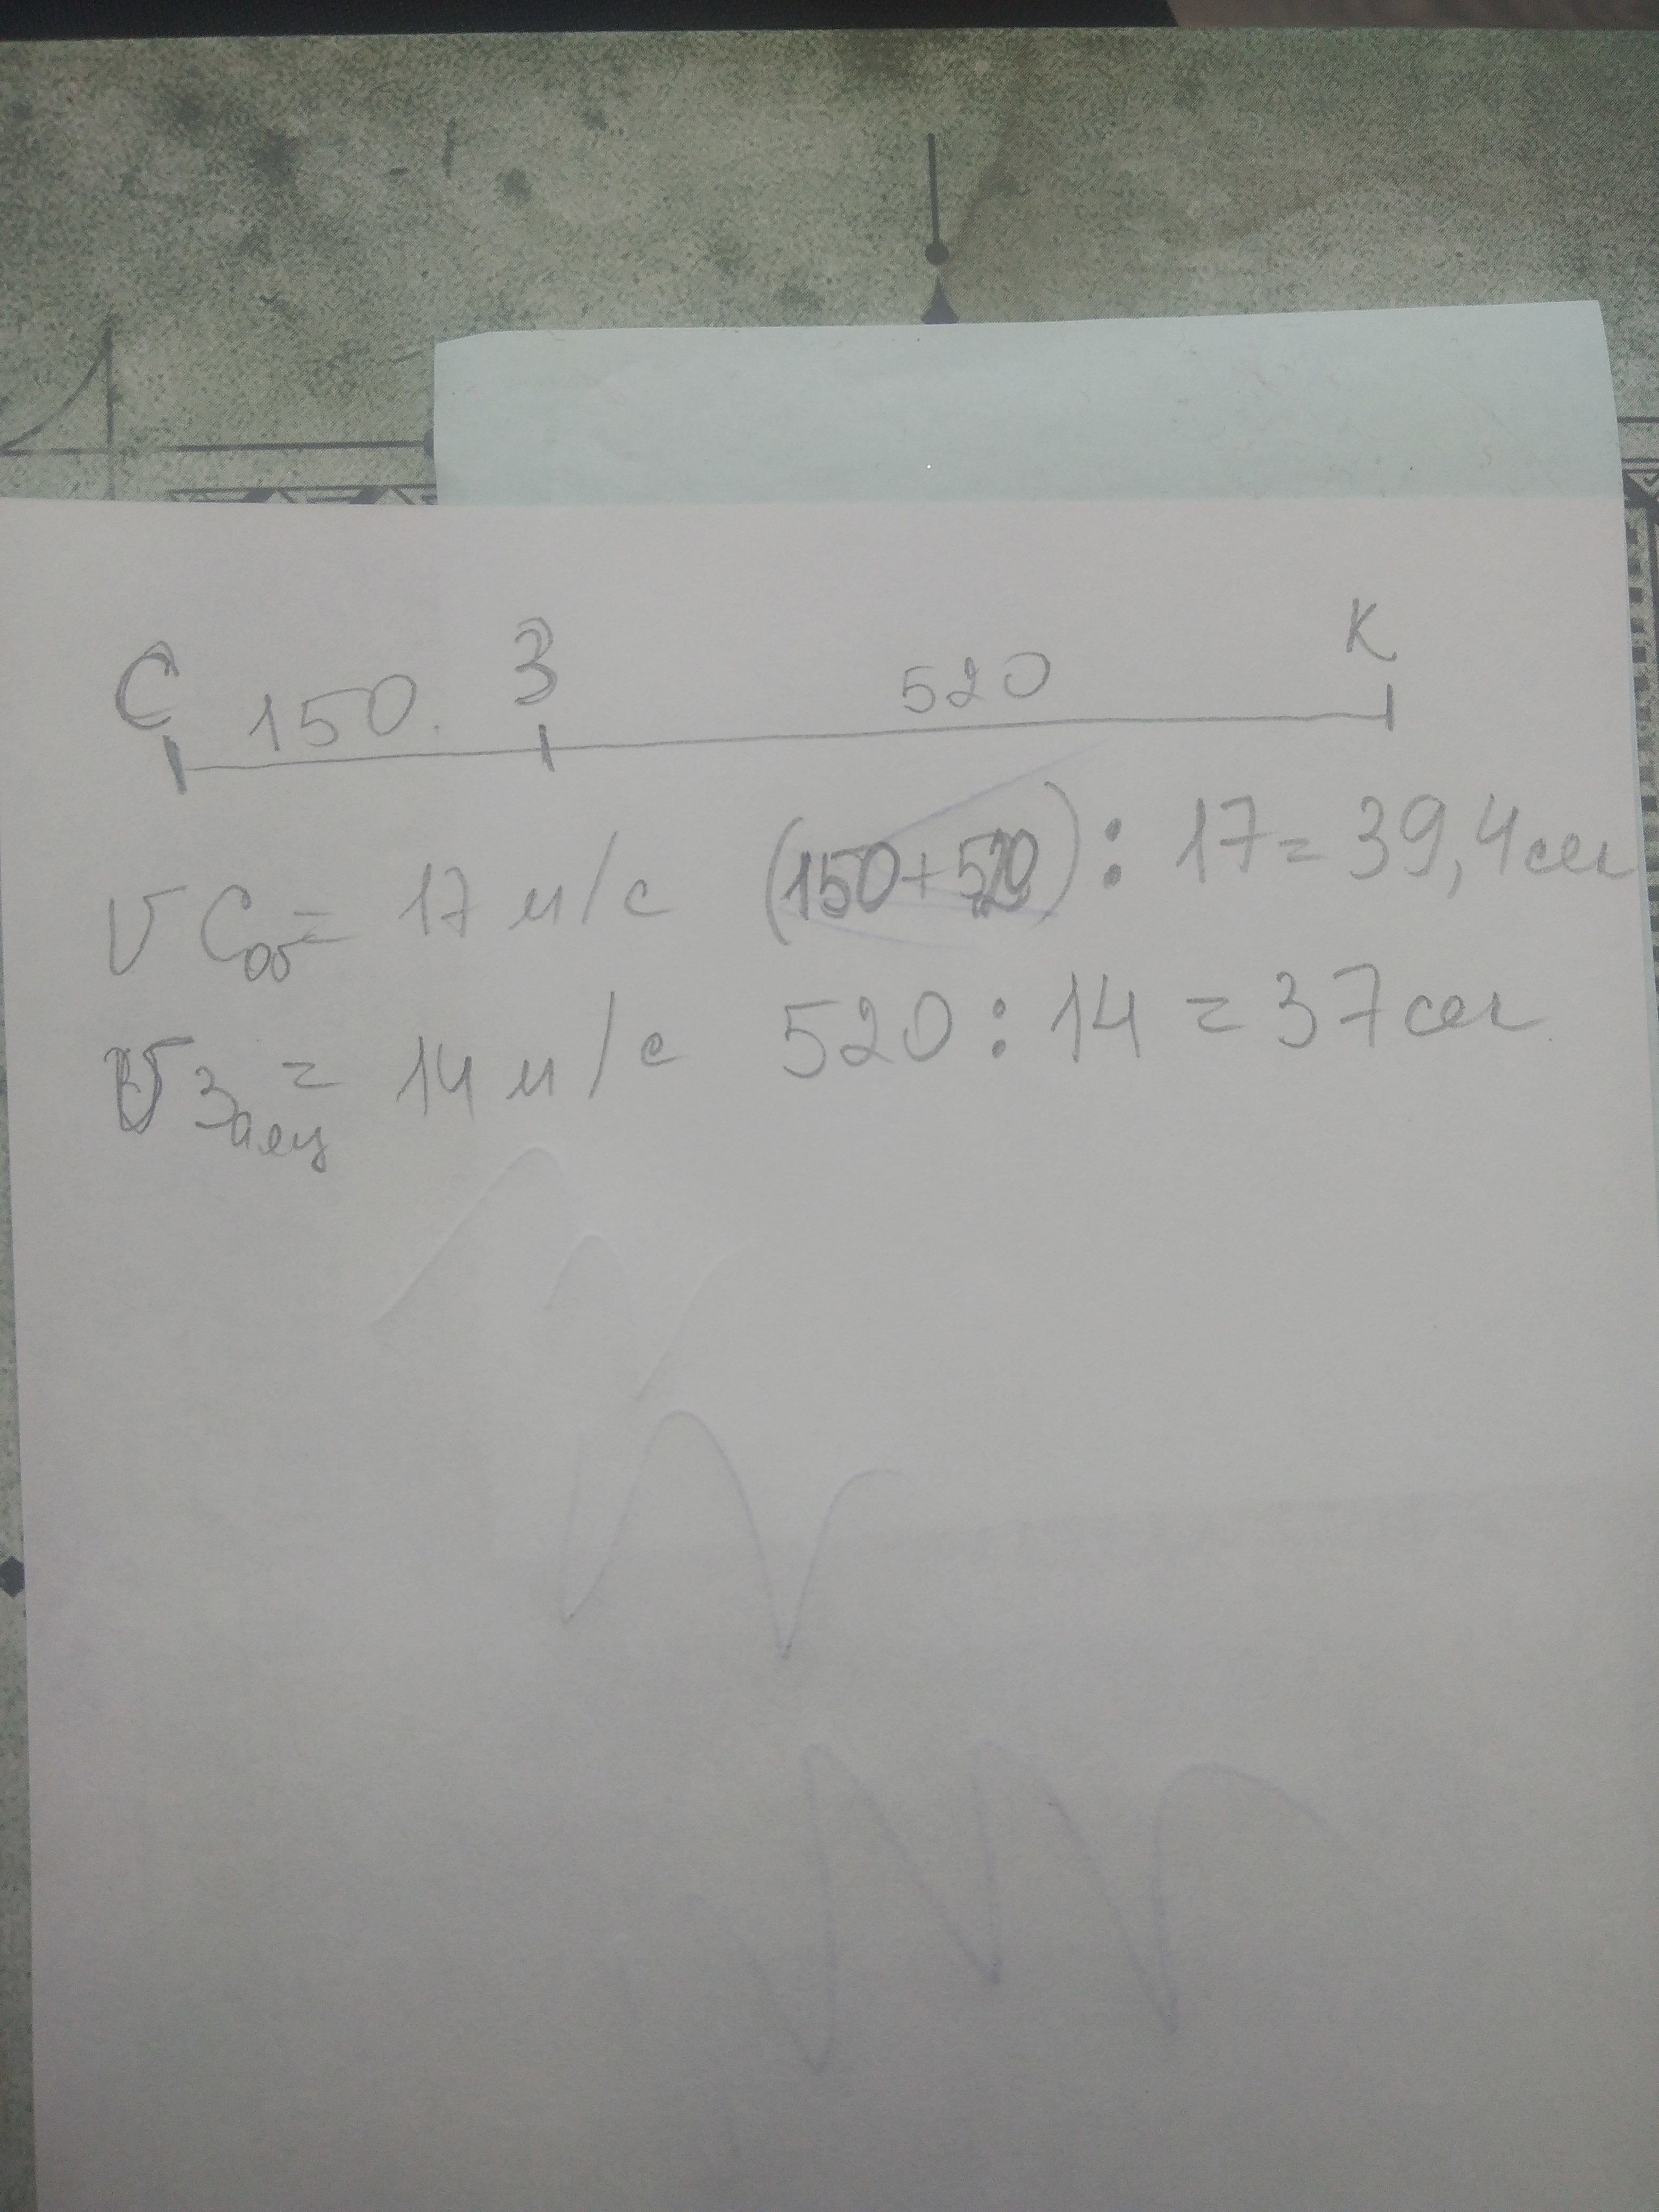 С 150. З 520 К
V Соб = 17 м/с (150+520) : 17 = 39,4 сек
V Заец = 14 м/с 520 : 14 = 37 сек